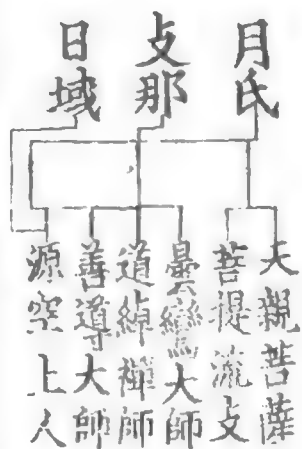 月氏
支那
日域
天親菩薩
菩提流支
曇鸞大師
道綽禪師
善導大師
源空上人